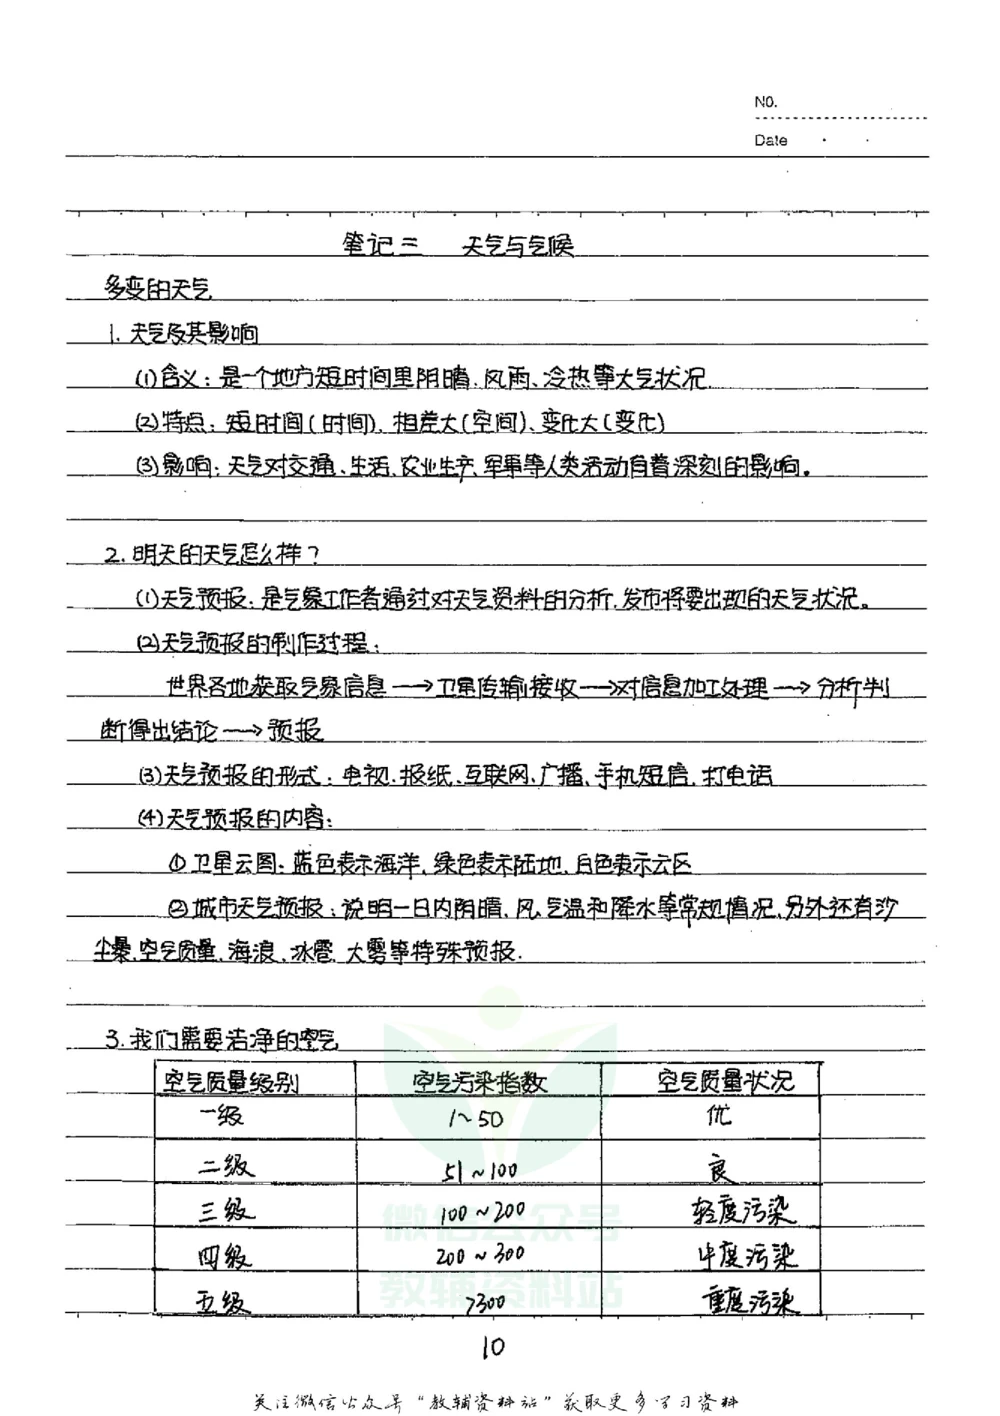 NO.
Date
笔记三 天气与气候
多变的天气
1. 天气及其影响
(1)含义：是一个地方短时间里阴晴、风雨、冷热等大气状况.
(2)特点：短时间(时间)、相差大(空间)、变化大(变化)
(3)影响：天气对交通、生活、农业生产、军事等人类活动有着深刻的影响。
2. 明天的天气怎么样？
(1)天气预报：是气象工作者通过对天气资料的分析,发布将要出现的天气状况。
(2)天气预报的制作过程：
世界各地获取气象信息→卫星传输接收→对信息加工处理→分析判
断得出结论→预报
(3)天气预报的形式：电视、报纸、互联网、广播、手机短信、打电话
(4)天气预报的内容：
①卫星云图：蓝色表示海洋,绿色表示陆地,白色表示云区
②城市天气预报：说明一日内阴晴、风、气温和降水等常规情况,另外还有沙
尘暴、空气质量、海浪、冰雹、大雾等特殊预报.
3. 我们需要洁净的空气
空气质量级别 空气污染指数 空气质量状况
一级 1~50 优
二级 51~100 良
三级 100~200 轻度污染
四级 200~300 中度污染
五级 >300 重度污染
微信公众号
教辅资料站
10
关注微信公众号“教辅资料站”获取更多学习资料